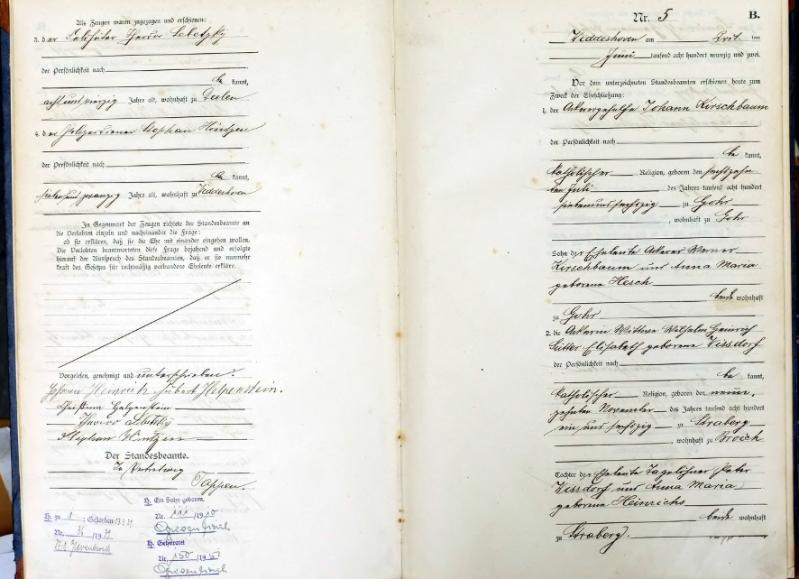 Als Zeugen waren zugezogen und erschienen:
3. der
der Persönlichkeit nach
be kannt,
achtundvierzig Jahre alt, wohnhaft zu Dalen
4. der Polizeidiener Stephan Wintzen
der Persönlichkeit nach
be kannt,
siebenundzwanzig Jahre alt, wohnhaft zu Widdeshoven
In Gegenwart der Zeugen richtete der Standesbeamte an
die Verlobten einzeln und nacheinander die Frage:
ob sie erklären, daß sie die Ehe mit einander eingehen wollen.
Die Verlobten beantworteten diese Frage bejahend und erfolgte
hierauf der Ausspruch des Standesbeamten, daß er sie nunmehr
kraft des Gesetzes für rechtmäßig verbundene Eheleute erkläre.
Vorgelesen, genehmigt und unterschrieben.
Johann Heinrich Hubert Helpenstein.
Helpenstein
Stephan Wintzen
Der Standesbeamte.
In Vertretung
Tappen.
H. Ein Sohn geboren
Nr.
H. Geheiratet
Nr. 150
Nr. 5
B.
Widdeshoven am Drit ten
Juni tausend acht hundert neunzig und zwei.
Vor dem unterzeichneten Standesbeamten erschienen heute zum
Zweck der Eheschließung:
1. der Ackergehülfe Johann Kirschbaum
der Persönlichkeit nach
be kannt,
katholischer Religion, geboren den sechszehn
ten Juli des Jahres tausend acht hundert
siebenundsechszig zu Gohr
, wohnhaft zu Gohr
Sohn der Eheleute Ackerer Werner
Kirschbaum und Anna Maria
geborene Hesch
beide wohnhaft
zu Gohr
2. die Ackerin Wittwe Wilhelm Heinrich
Ritter Elisabeth geborene Vissdorf
der Persönlichkeit nach
be kannt,
katholischer Religion, geboren den neun,
zehnten November des Jahres tausend acht hundert
ein und sechszig zu Straberg
, wohnhaft zu Broich
Tochter der Eheleute Tagelöhner Peter
Vissdorf und Anna Maria
geborene Heinrichs
beide wohnhaft
zu Straberg.